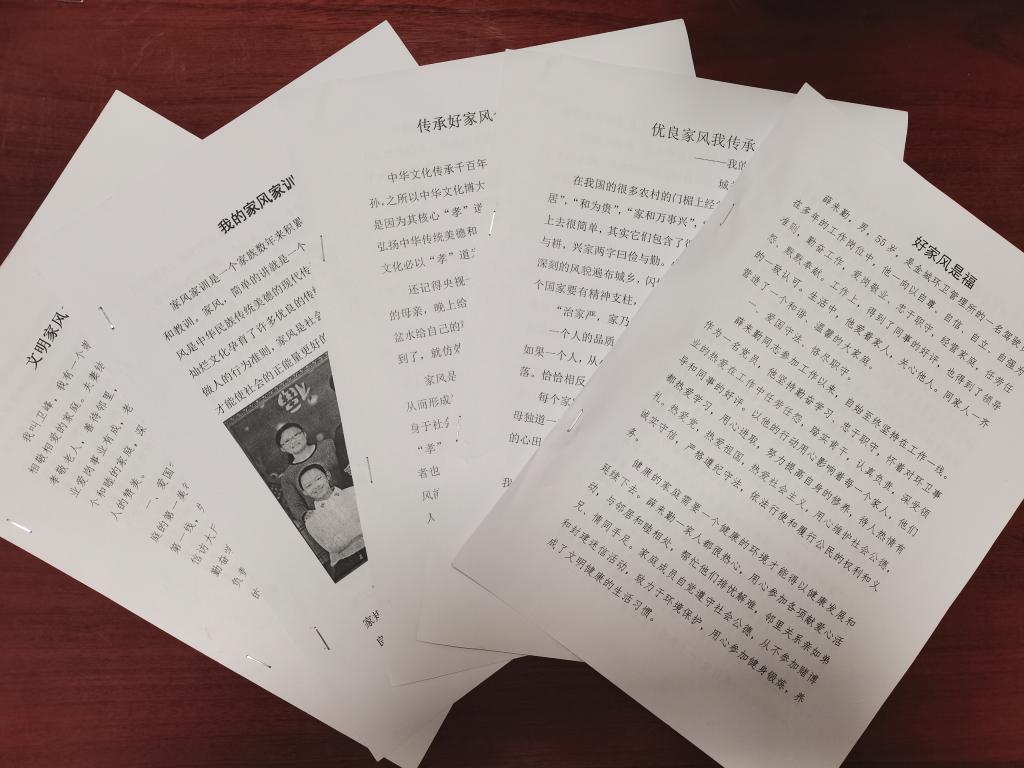 文明家风
我叫卫峰，我有一个
相敬相爱的家庭。夫妻结
孝敬老人，善待邻里，
业爱岗事业有成，老
个和睦的家庭，深
人的赞美。
一、爱国
庭的第一美
第一线，
信访大厅
勤奋
负责
我的家风家训
家风家训是一个家族数年来积累
和教训。家风，简单的讲就是一个
风是中华民族传统美德的现代传
灿烂文化孕育了许多优良的传统
做人的行为准则，家风是社会
才能使社会的正能量更好的
传承好家风
中华文化传承千百年
孙，之所以中华文化博大
是因为其核心“孝”道
弘扬中华传统美德和
文化必以“孝”道
还记得央视
的母亲，晚上给
盆水给自己的
到了，就仿
家风是
从而形成
身于社会
“孝”
者也
风
人
优良家风我传承
———我的
城
在我国的很多农村的门楣上经
居”，“和为贵”，“家和万事兴”，
上去很简单，其实它们包含了
与耕，兴家两字曰俭与勤。
深刻的风貌遍布城乡，闪
个国家要有精神支柱，
“治家严，家乃
一个人的品质
如果一个人，从
落。恰恰相反
每个家
母独道一
的心田
我
好家风是福
薛来勤，男，55岁，是金城环卫管理所的一名驾驶
在多年的工作岗位中，他一向以自尊、自信、自立、自强为
准则，勤奋工作，爱岗敬业、忠于职守、经营家庭，任劳任
怨、默默奉献。工作上，得到了同事的好评，也得到了领导
的一致认可。生活中，他爱着家人，关心他人，同家人一齐
营造了一个和谐、温馨的大家庭。
一、爱国守法，恪尽职守。
薛来勤同志参加工作以来，自始至终坚持在工作一线。
作为一名党员，他坚持勤奋学习、忠于职守，怀着对环卫事
业的热爱在工作中任劳任怨，踏实肯干，认真负责，深受领
导和同事的好评。以他的行动用心影响着每一个家人，他们
都热爱学习，用心进取，努力提高自身的修养，待人热情有
礼。热爱党，热爱祖国，热爱社会主义，用心维护社会公德，
诚实守信，严格遵纪守法，依法行使和履行公民的权利和义
务。
健康的家庭需要一个健康的环境才能得以健康发展和
延续下去。薛来勤一家人都很热心，用心参加各项献爱心活
动，与邻居和睦相处，帮忙他们排忧解难，邻里关系亲如弟
兄，情同手足。家庭成员自觉遵守社会公德，从不参加赌博
和封建迷信活动，致力于环境保护，用心参加健身锻炼，养
成了文明健康的生活习惯。